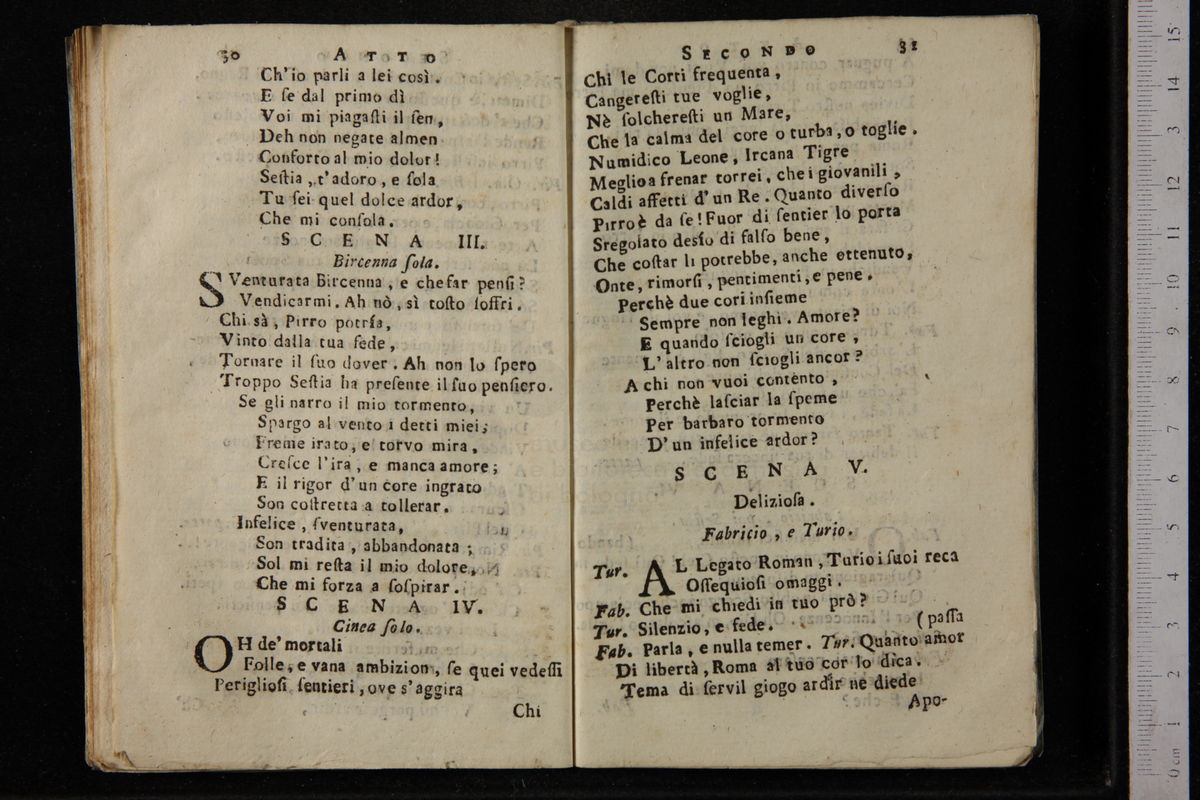 30 ATTO
Ch'io parli a lei così.
E ſe dal primo dì
Voi mi piagaſti il ſen,
Deh non negate almen
Conforto al mio dolor!
Seſtia, t'adoro, e ſola
Tu ſei quel dolce ardor,
Che mi conſola.
SCENA III.
Bircenna ſola.
SVenturata Bircenna, e che far penſi?
Vendicarmi. Ah nò, sì toſto ſoffri.
Chi sà, Pirro potrìa,
Vinto dalla tua fede,
Tornare il ſuo dover. Ah non lo ſpero
Troppo Seſtia ha preſente il ſuo penſiero.
Se gli narro il mio tormento,
Spargo al vento i detti miei;
Freme irato, e torvo mira,
Creſce l'ira, e manca amore;
E il rigor d'un core ingrato
Son coſtretta a tollerar.
Infelice, ſventurata,
Son tradita, abbandonata;
Sol mi reſta il mio dolore,
Che mi forza a ſoſpirar.
SCENA IV.
Cinea ſolo.
OH de' mortali
Folle, e vana ambizion, ſe quei vedeſſi
Periglioſi ſentieri, ove s'aggira
Chi
SECONDO 31
Chi le Corti frequenta,
Cangereſti tue voglie,
Nè ſolchereſti un Mare,
Che la calma del core o turba, o toglie.
Numidico Leone, Ircana Tigre
Meglio a frenar torrei, che i giovanili,
Caldi affetti d'un Re. Quanto diverſo
Pirro è da ſe! Fuor di ſentier lo porta
Sregolato desìo di falſo bene,
Che coſtar li potrebbe, anche ottenuto,
Onte, rimorſi, pentimenti, e pene.
Perchè due cori inſieme
Sempre non leghi. Amore?
E quando ſciogli un core,
L'altro non ſciogli ancor?
A chi non vuoi contento,
Perchè laſciar la ſpeme
Per barbaro tormento
D'un infelice ardor?
SCENA V.
Delizioſa.
Fabricio, e Turio.
Tur. AL Legato Roman, Turio i ſuoi reca
Oſſequioſi omaggi.
Fab. Che mi chiedi in tuo prò?
Tur. Silenzio, e fede. (paſſa
Fab. Parla, e nulla temer. Tur. Quanto amor
Di libertà, Roma al tuo cor lo dica.
Tema di ſervil giogo ardir ne diede
Apo-
15
14
13
12
11
10
9
8
7
6
5
4
3
2
1
0 cm